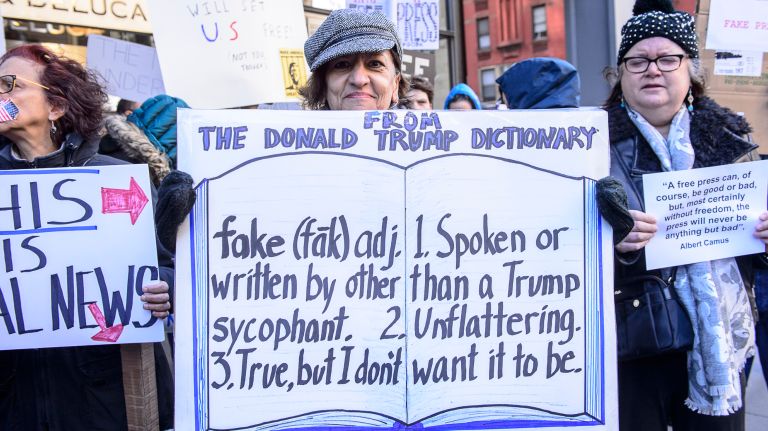 & DELUCA
WILL SET
U S
(NOT YOU,
PRESS
FAKE PR
THE
HIS
IS
AL NEWS
FROM
THE DONALD TRUMP DICTIONARY
fake (fāk) adj. 1. Spoken or
written by other than a Trump
sycophant. 2. Unflattering.
3. True, but I don't want it to be.
"A free press can, of
course, be good or bad,
but, most certainly
without freedom, the
press will never be
anything but bad".
Albert Camus